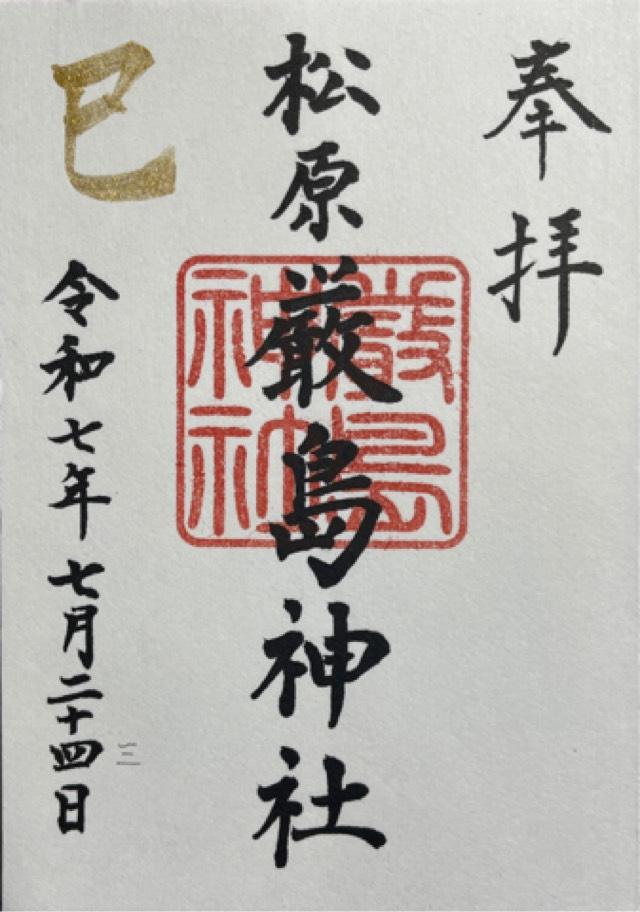 奉拝
松原厳島神社
厳島
神社
巳
令和七年七月二十四日
三